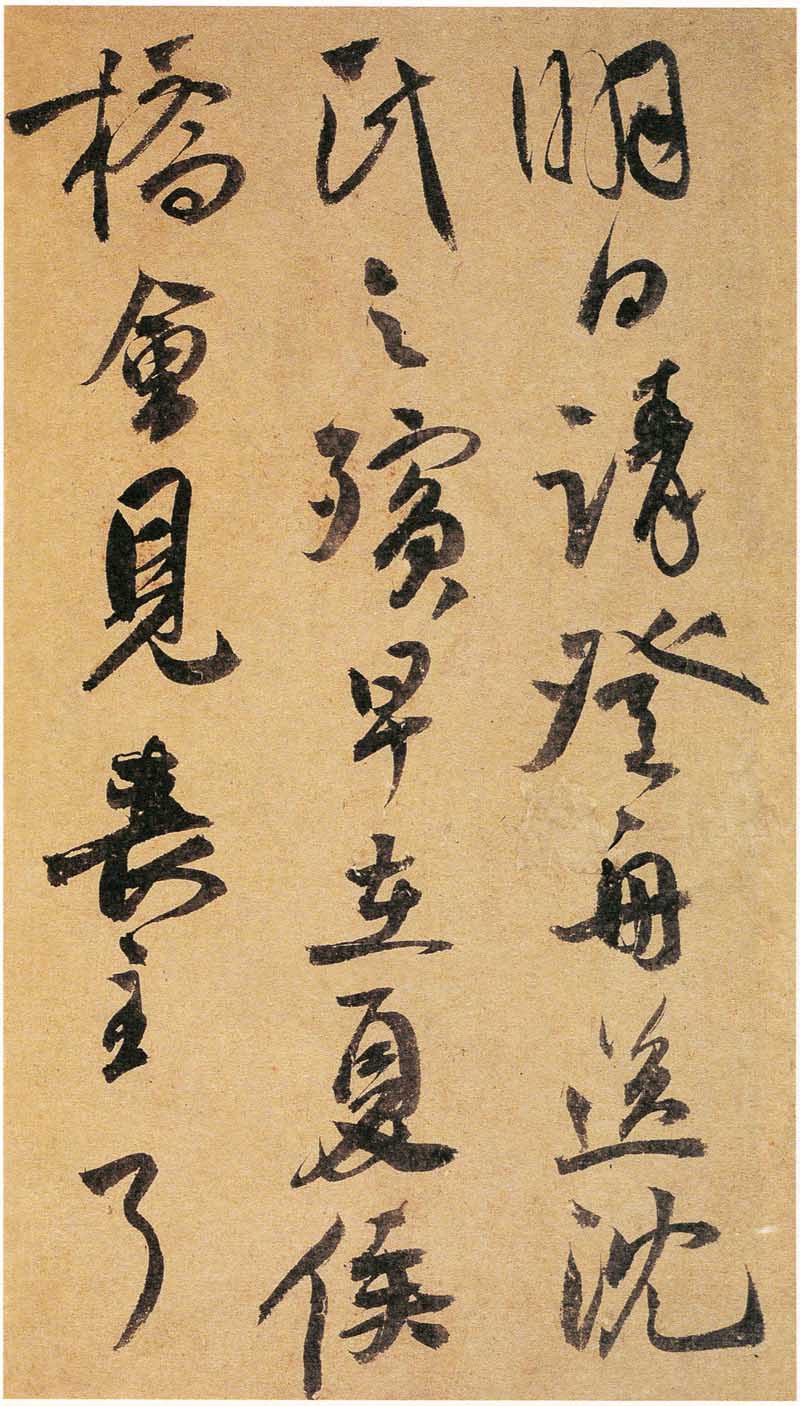 明日請登舟送沈
氏之殯早在夏侯
橋會見喪主了